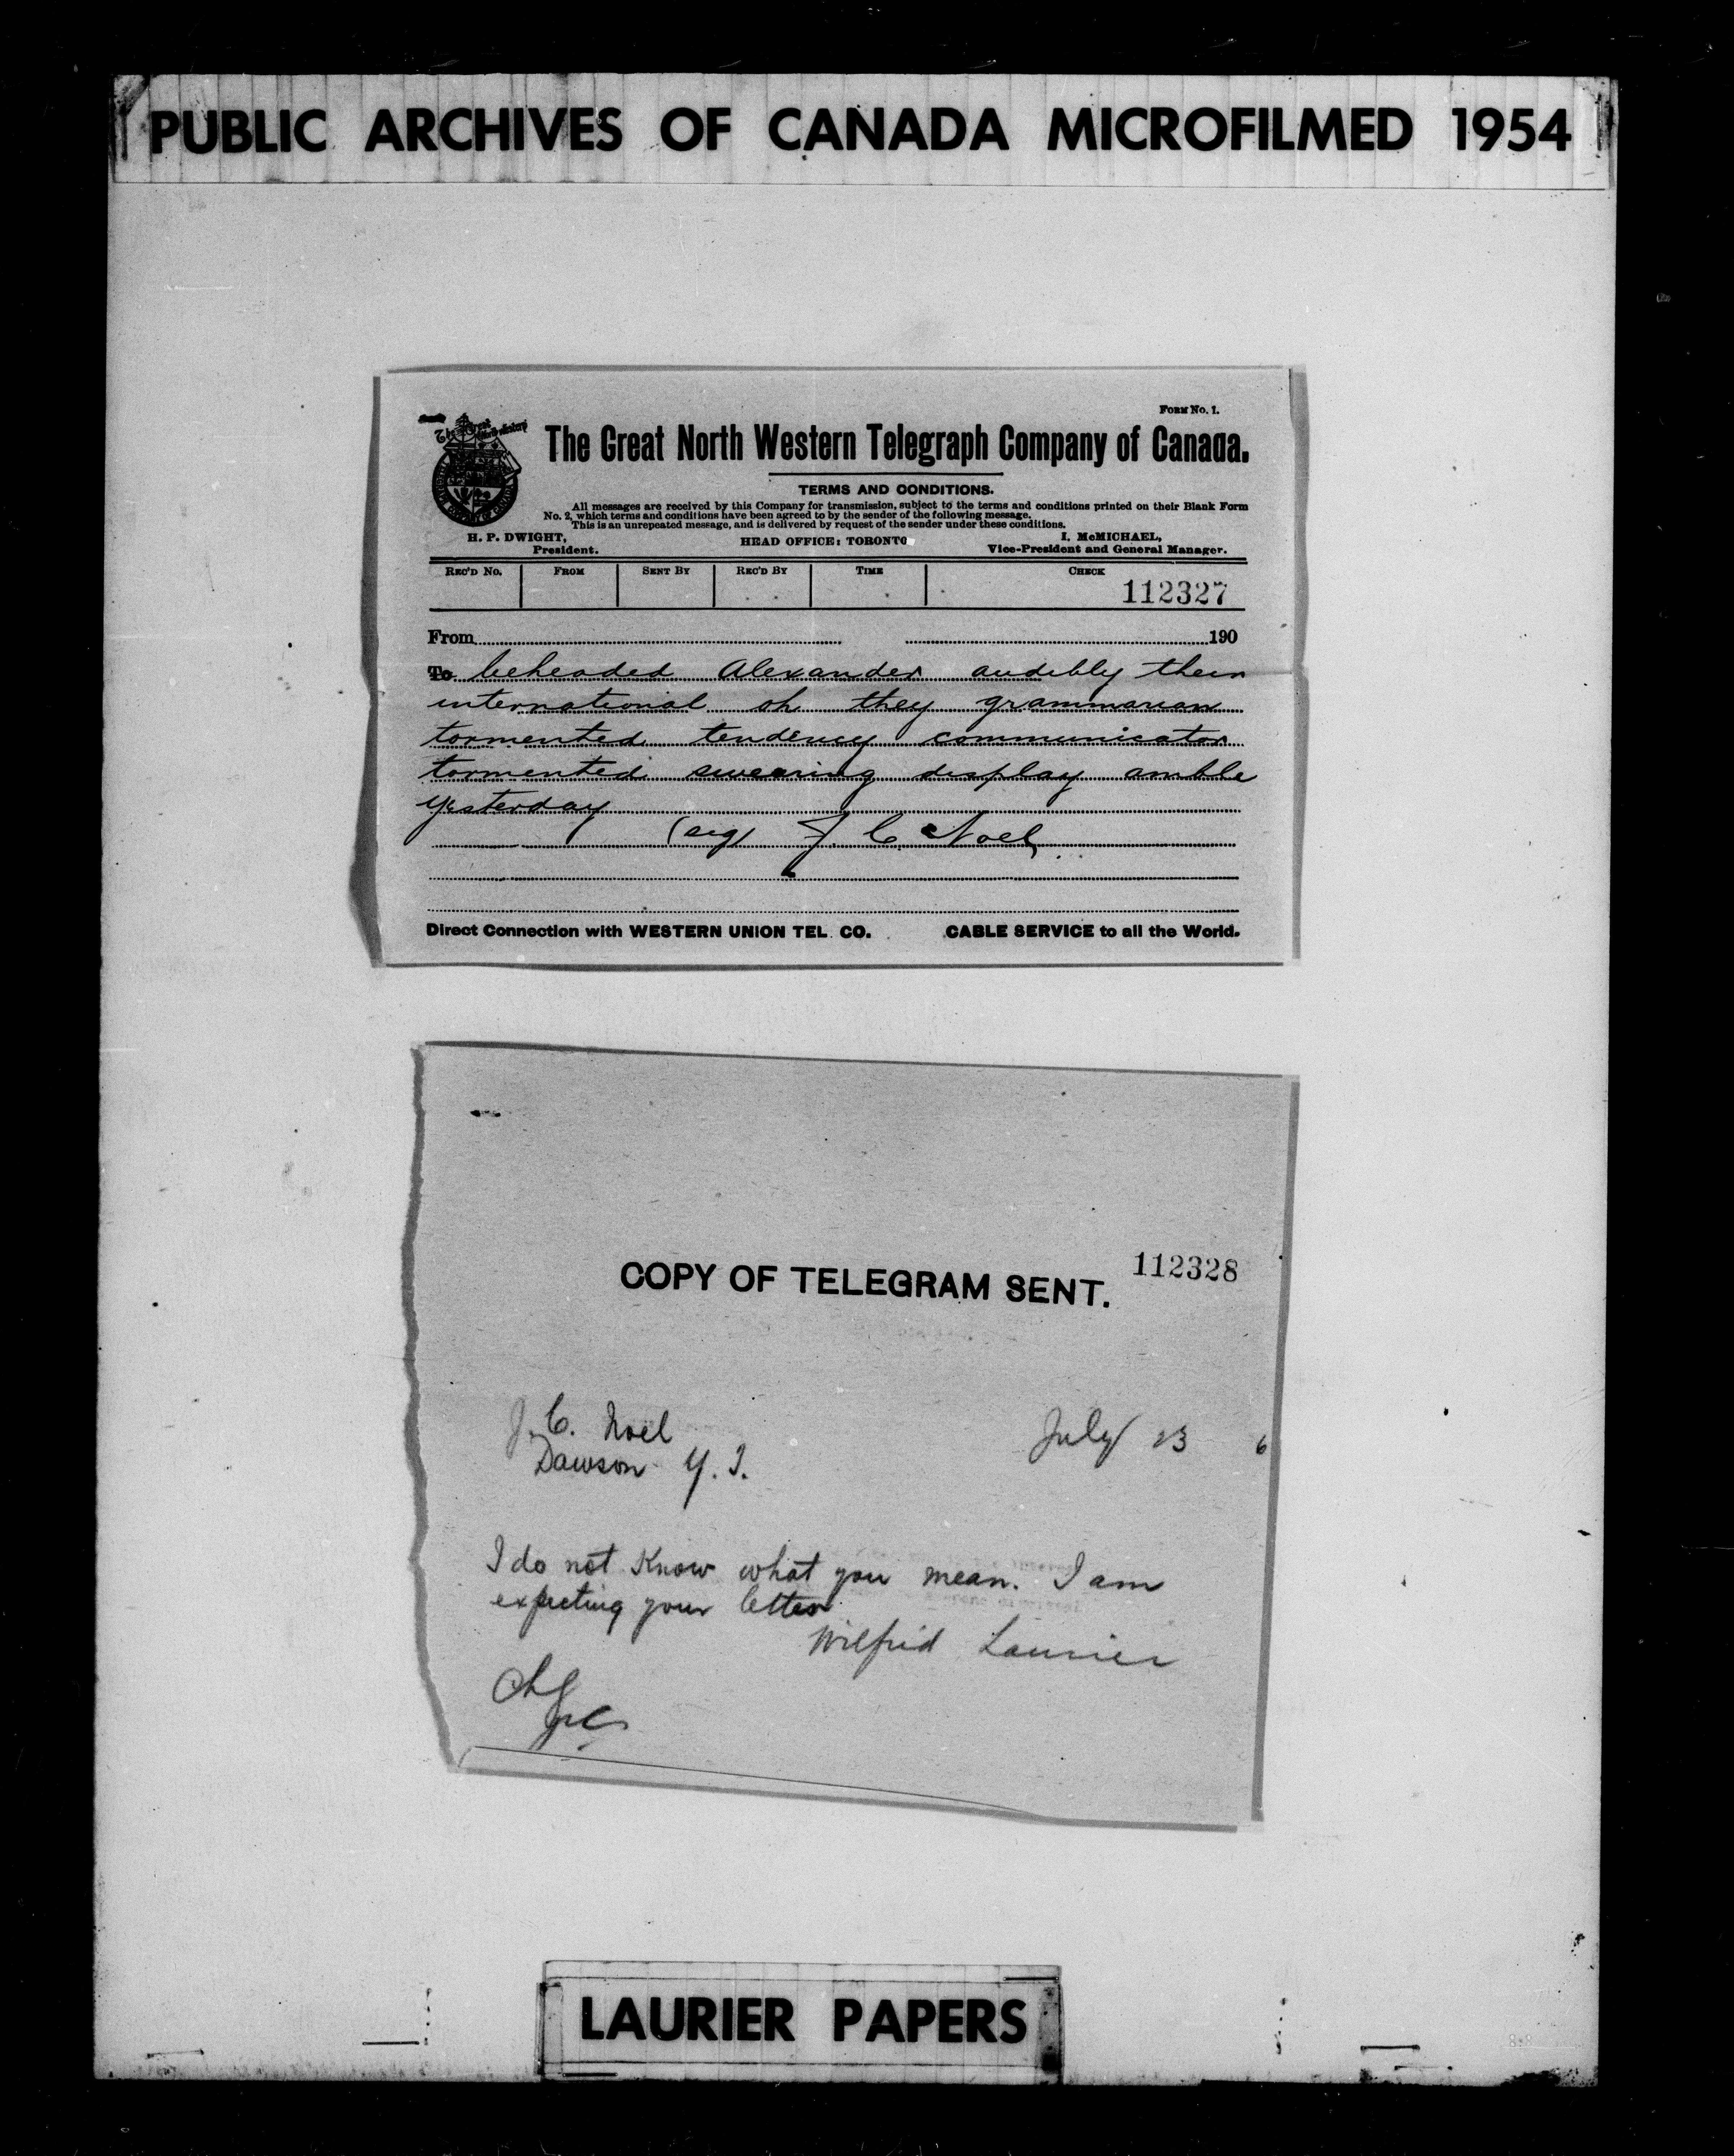 PUBLIC ARCHIVES OF CANADA MICROFILMED 1954
FORM No. 1.
The Great North Western Telegraph Company of Canada.
TERMS AND CONDITIONS.
All messages are received by this Company for transmission, subject to the terms and conditions printed on their Blank Form
No. 2, which terms and conditions have been agreed to by the sender of the following message.
This is an unrepeated message, and is delivered by request of the sender under these conditions.
H. P. DWIGHT,
President.
HEAD OFFICE: TORONTO
I. McMICHAEL,
Vice-President and General Manager.
REC'D No. FROM SENT BY REC'D BY TIME CHECK
112327
From 190
To beheaded Alexander audibly their
international oh they grammarian
tormented tendency communicator
tormented swearing display amble
yesterday
(sig) J. C. Noel
Direct Connection with WESTERN UNION TEL. CO. CABLE SERVICE to all the World.
112328
COPY OF TELEGRAM SENT.
J. C. Noel July 23 6
Dawson Y. T.
I do not know what you mean. I am
expecting your letter
Wilfrid Laurier
LAURIER PAPERS